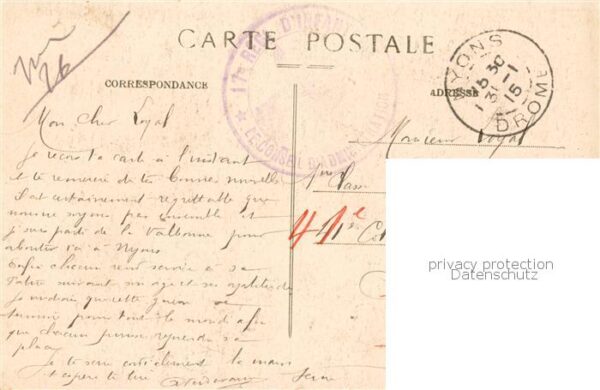 CARTE POSTALE
CORRESPONDANCE
ADRESSE
NYONS
15 30
31 -1
15
DROME
17e
D'INFAN
LE CONSEIL D'ADMIN
Mon Cher Loyal
Je reçois ta carte à l'instant
et te remercie de tes bonnes nouvelles
Il est certainement regrettable que
nous ne soyons pas ensemble et
je suis parti de la Valbonne pour
aboutir ici à Nyons
Enfin chacun rend service à sa
Patrie suivant son age et ses aptitudes
je voudrais que cette guerre se
termine pour tout le monde afin
que chacun puisse reprendre sa
place
Je te serre cordialement la main
et espère te lire
Monsieur Loyal
41e
privacy protection
Datenschutz